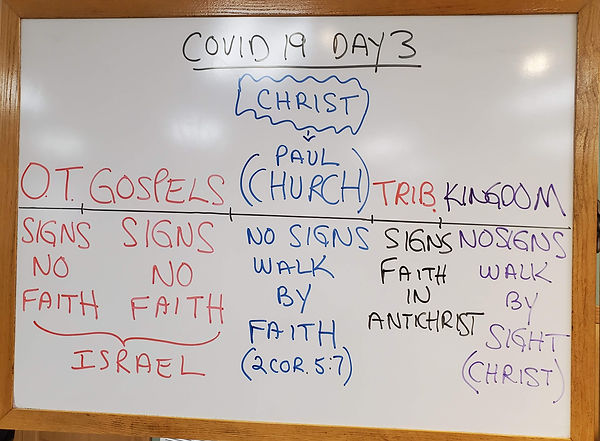 COVID 19 DAY 3
CHRIST
PAUL
O.T. GOSPELS (CHURCH) TRIB. KINGDOM
SIGNS
NO
FAITH
SIGNS
NO
FAITH
ISRAEL
NO SIGNS
WALK
BY
FAITH
(2 COR. 5:7)
SIGNS
FAITH
IN
ANTICHRIST
NO SIGNS
WALK
BY
SIGHT
(CHRIST)